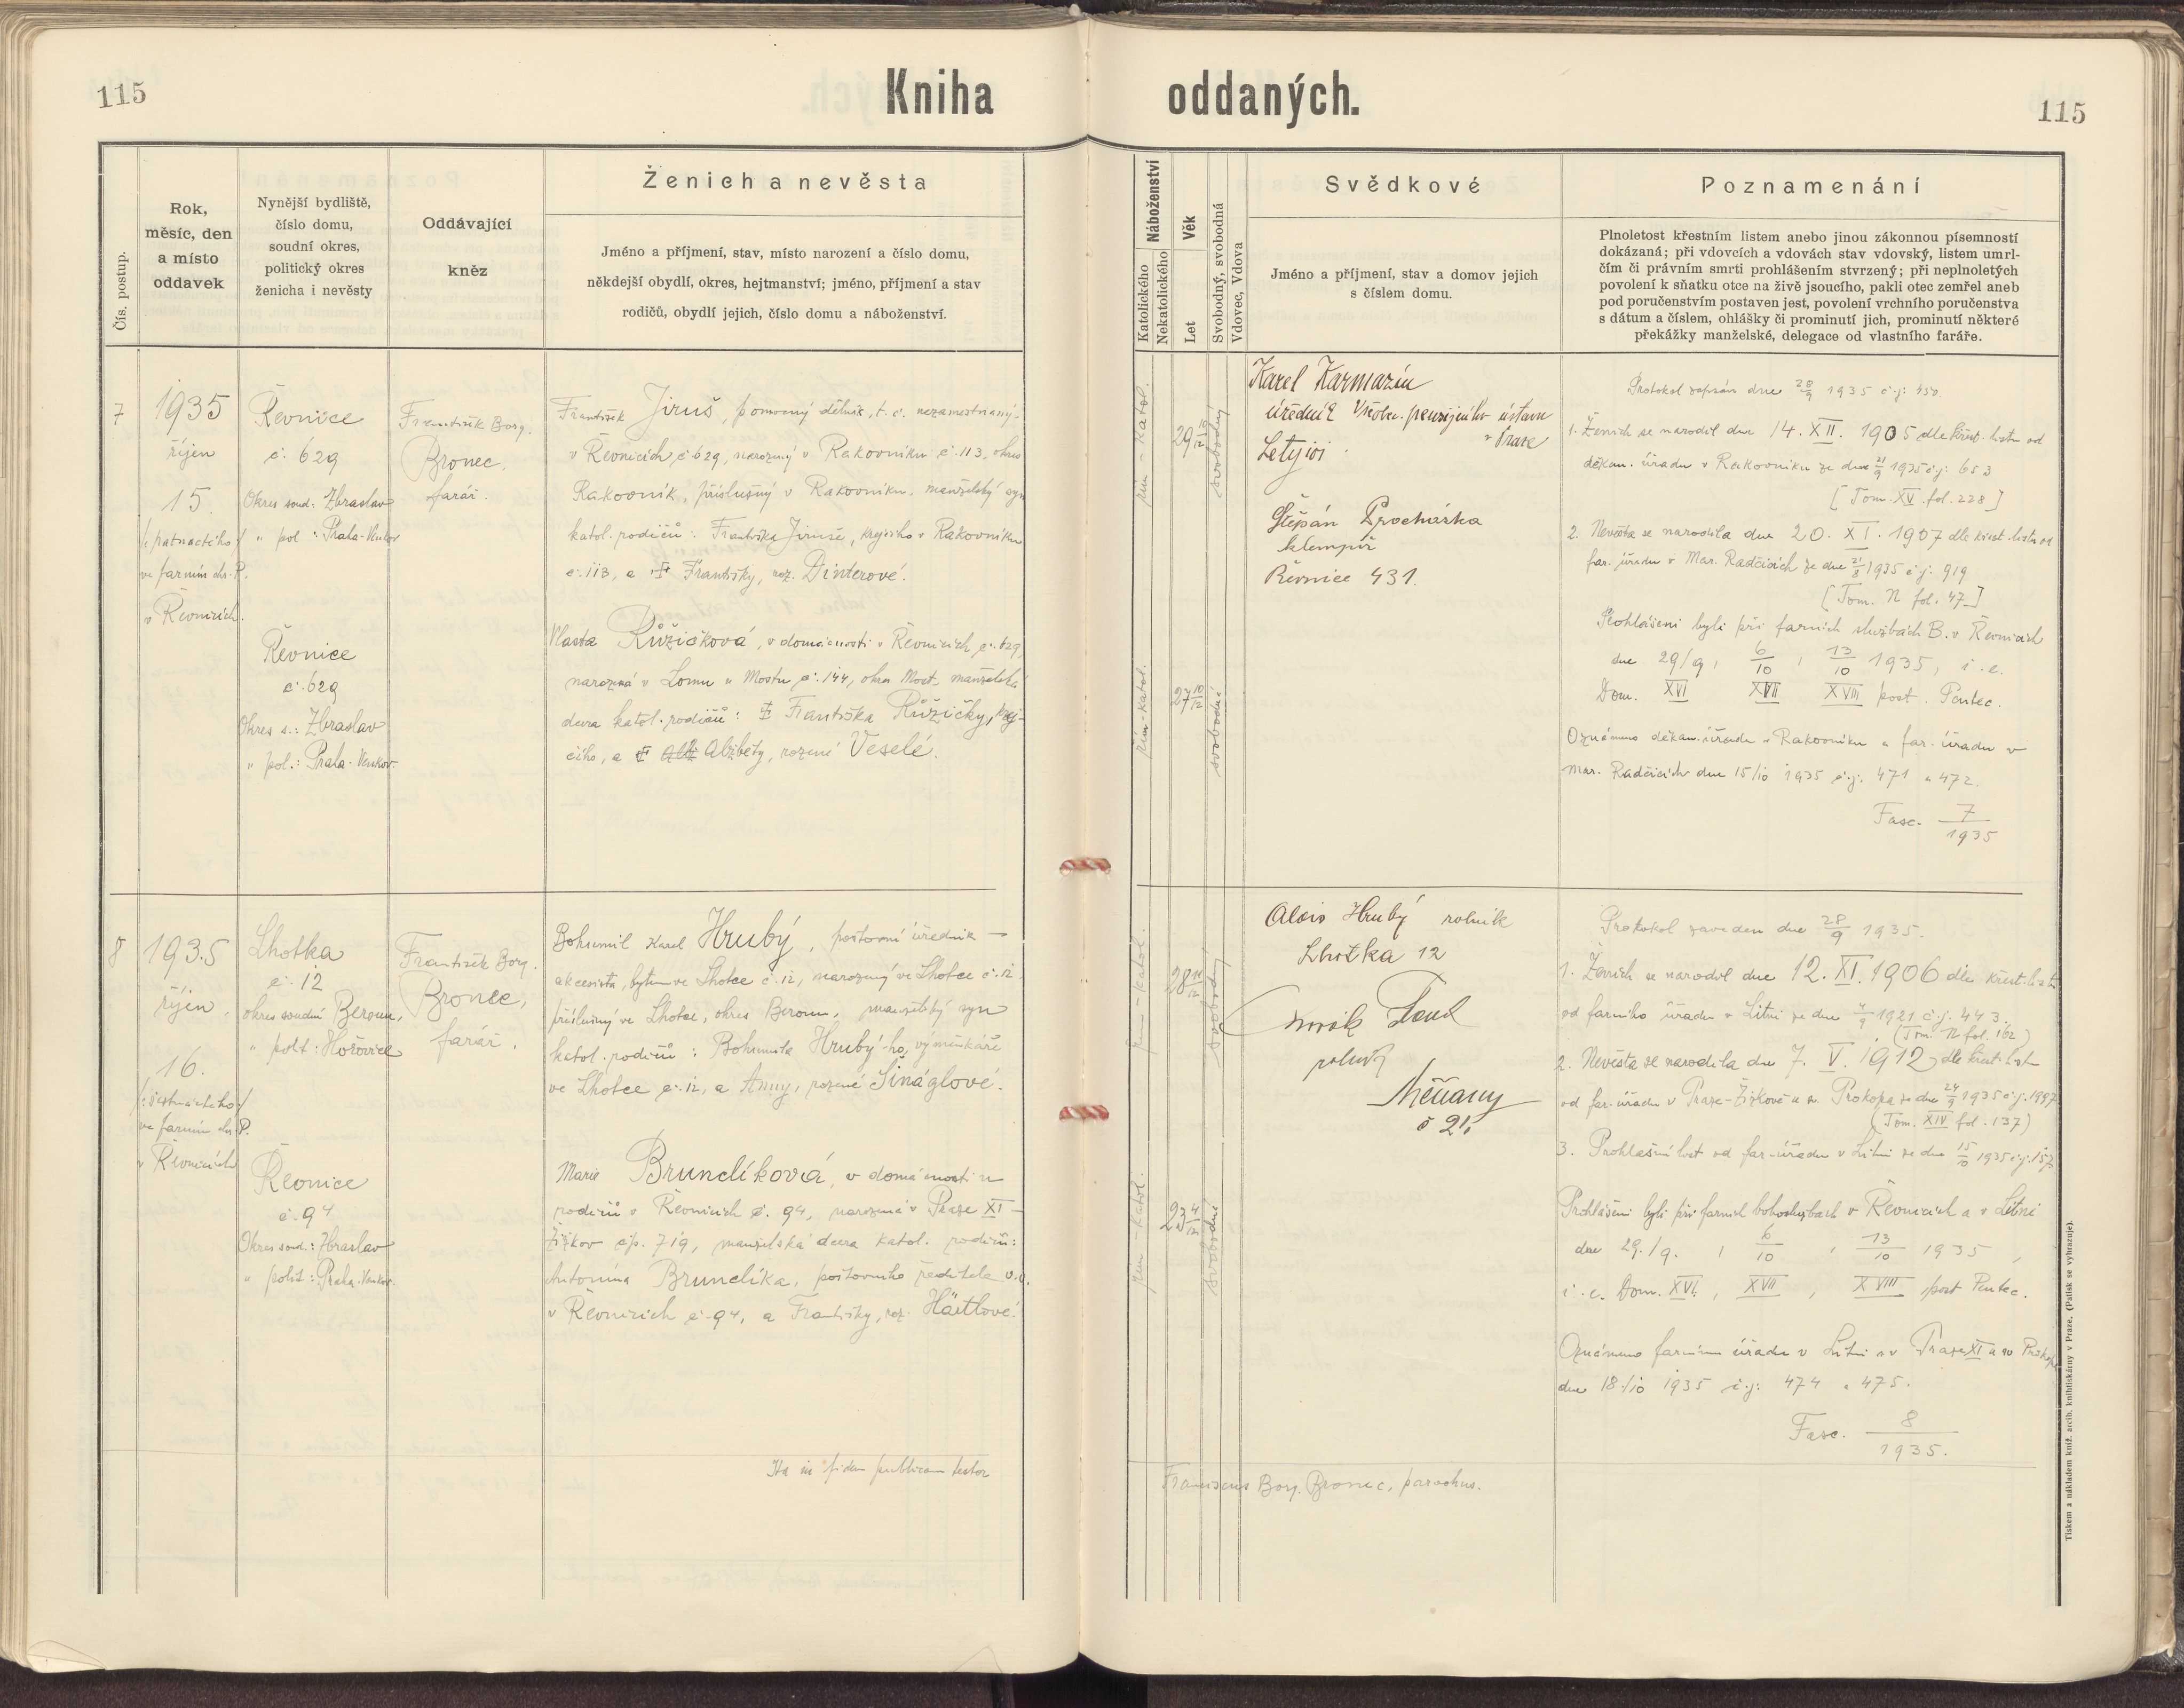 115
Kniha oddaných.
115
Čís. postup.
Rok,
měsíc, den
a místo
oddavek
Nynější bydliště,
číslo domu,
soudní okres,
politický okres
ženicha i nevěsty
Oddávající
kněz
Ženich a nevěsta
Jméno a příjmení, stav, místo narození a číslo domu,
někdejší obydlí, okres, hejtmanství; jméno, příjmení a stav
rodičů, obydlí jejich, číslo domu a náboženství.
Náboženství
Katolického
Nekatolického
Věk
Let
Svobodný, svobodná
Vdovec, Vdova
Svědkové
Jméno a příjmení, stav a domov jejich
s číslem domu.
Poznamenání
Plnoletost křestním listem anebo jinou zákonnou písemností
dokázaná; při vdovcích a vdovách stav vdovský, listem umrl-
čím či právním smrti prohlášením stvrzený; při neplnoletých
povolení k sňatku otce na živě jsoucího, pakli otec zemřel aneb
pod poručenstvím postaven jest, povolení vrchního poručenstva
s dátum a číslem, ohlášky či prominutí jich, prominutí některé
překážky manželské, delegace od vlastního faráře.
7
1935
říjen
15.
/: patnáctého :/
ve farním chr. P.
v Řevnicích.
Řevnice
č. 629
Okres soud: Zbraslav
" pol: Praha-Venkov
Řevnice
č. 629
Okres s.: Zbraslav
" pol.: Praha-Venkov.
František Borg.
Bronec,
farář.
František Jiruš, pomocný dělník, t. č. nezaměstnaný-
v Řevnicích č. 629, narozený v Rakovníku č. 113, okres
Rakovník, příslušný v Rakovníku, manželský syn
katol. rodičů: Františka Jiruše, krejčího v Rakovníku
č. 113, a † Františky, roz. Dinterové.
Vlasta Růžičková, v domácnosti v Řevnicích č. 629,
narozená v Lomu u Mostu č. 144, okres Most, manželská
dcera katol. rodičů: † Františka Růžičky, krej-
čího, a † Alžběty, rozené Veselé.
řím-katol.
29 10/12
svobodný
řím-katol.
27 10/12
svobodná
Karel Karmazín
úředník Všeob. penzijního ústavu
v Praze
Štěpán Procházka
klempíř
Řevnice 431.
Protokol zapsán dne 28/9 1935 č.j: 450.
1. Ženich se narodil dne 14. XII. 1905 dle křest. listu od
děkan. úřadu v Rakovníku ze dne 21/9 1935 č.j: 653
[Tom. XV. fol. 228]
2. Nevěsta se narodila dne 20. XI. 1907 dle křest. listu od
far. úřadu v Mar. Radčicích ze dne 21/8 1935 č.j: 919
[Tom. N fol. 47]
Prohlášeni byli při farních službách B. v Řevnicích
dne 29/9, 6/10, 13/10 1935, i. e.
Dom. XVI XVII XVIII post. Pentec.
Oznámeno děkan. úřadu v Rakovníku a far. úřadu v
Mar. Radčicích dne 15/10 1935 č.j. 471 a 472.
Fasc. 7/1935
8
1935
říjen
16.
/: šestnáctého :/
ve farním chr. P.
v Řevnicích
Lhotka
č. 12
okres soudní Beroun,
" polt: Hořovice
Řevnice
č. 94
Okres soud: Zbraslav
" polit: Praha-Venkov.
František Borg.
Bronec,
farář.
Bohumil Karel Hrubý, poštovní úředník-
akcesista, bytem ve Lhotce č. 12, narozený ve Lhotce č. 12,
příslušný ve Lhotce, okres Beroun, manželský syn
katol. rodičů: Bohumila Hrubý-ho, výměnkáře
ve Lhotce č. 12, a Anny, rozené Šináglové.
Marie Brunclíková, v domácnosti u
rodičů v Řevnicích č. 94, narozená v Praze XI-
Žižkov čp. 719, manželská dcera katol. rodičů:
Antonína Brunclíka, poštovního ředitele v.v.
v Řevnicích č. 94, a Františky, roz. Häitlové.
řím-katol.
28 11/12
svobodný
řím-katol.
23 4/12
svobodná
Alois Hrubý rolník
Lhotka 12
Novák
rolník
Měňany
č 21.
Protokol zaveden dne 28/9 1935.
1. Ženich se narodil dne 12. XI. 1906 dle křest. listu
od farního úřadu v Litni ze dne 4/9 1921 č.j. 443.
(Tom. N fol. 162)
2. Nevěsta se narodila dne 7. V. 1912 dle křest. listu
od far. úřadu v Praze-Žižkově u sv. Prokopa ze dne 24/9 1935 č.j. 1997
(Tom. XIV fol. 137)
3. Prohlašní list od far. úřadu v Litni ze dne 15/10 1935 č.j. 157
Prohlášeni byli při farních bohoslužbách v Řevnicích a v Litni
dne 29./9., 6/10, 13/10 1935,
i. e. Dom. XVI, XVII, XVIII post Pentec.
Oznámeno farnímu úřadu v Litni a v Praze XI u sv Prokopa
dne 18./10 1935 č.j: 474 a 475.
Fasc. 8/1935.
Ita in fidem publicam testor
Franciscus Borg. Bronec, parochus.
Tiskem a nákladem kníž. arcib. knihtiskárny v Praze. (Patisk se vyhrazuje).